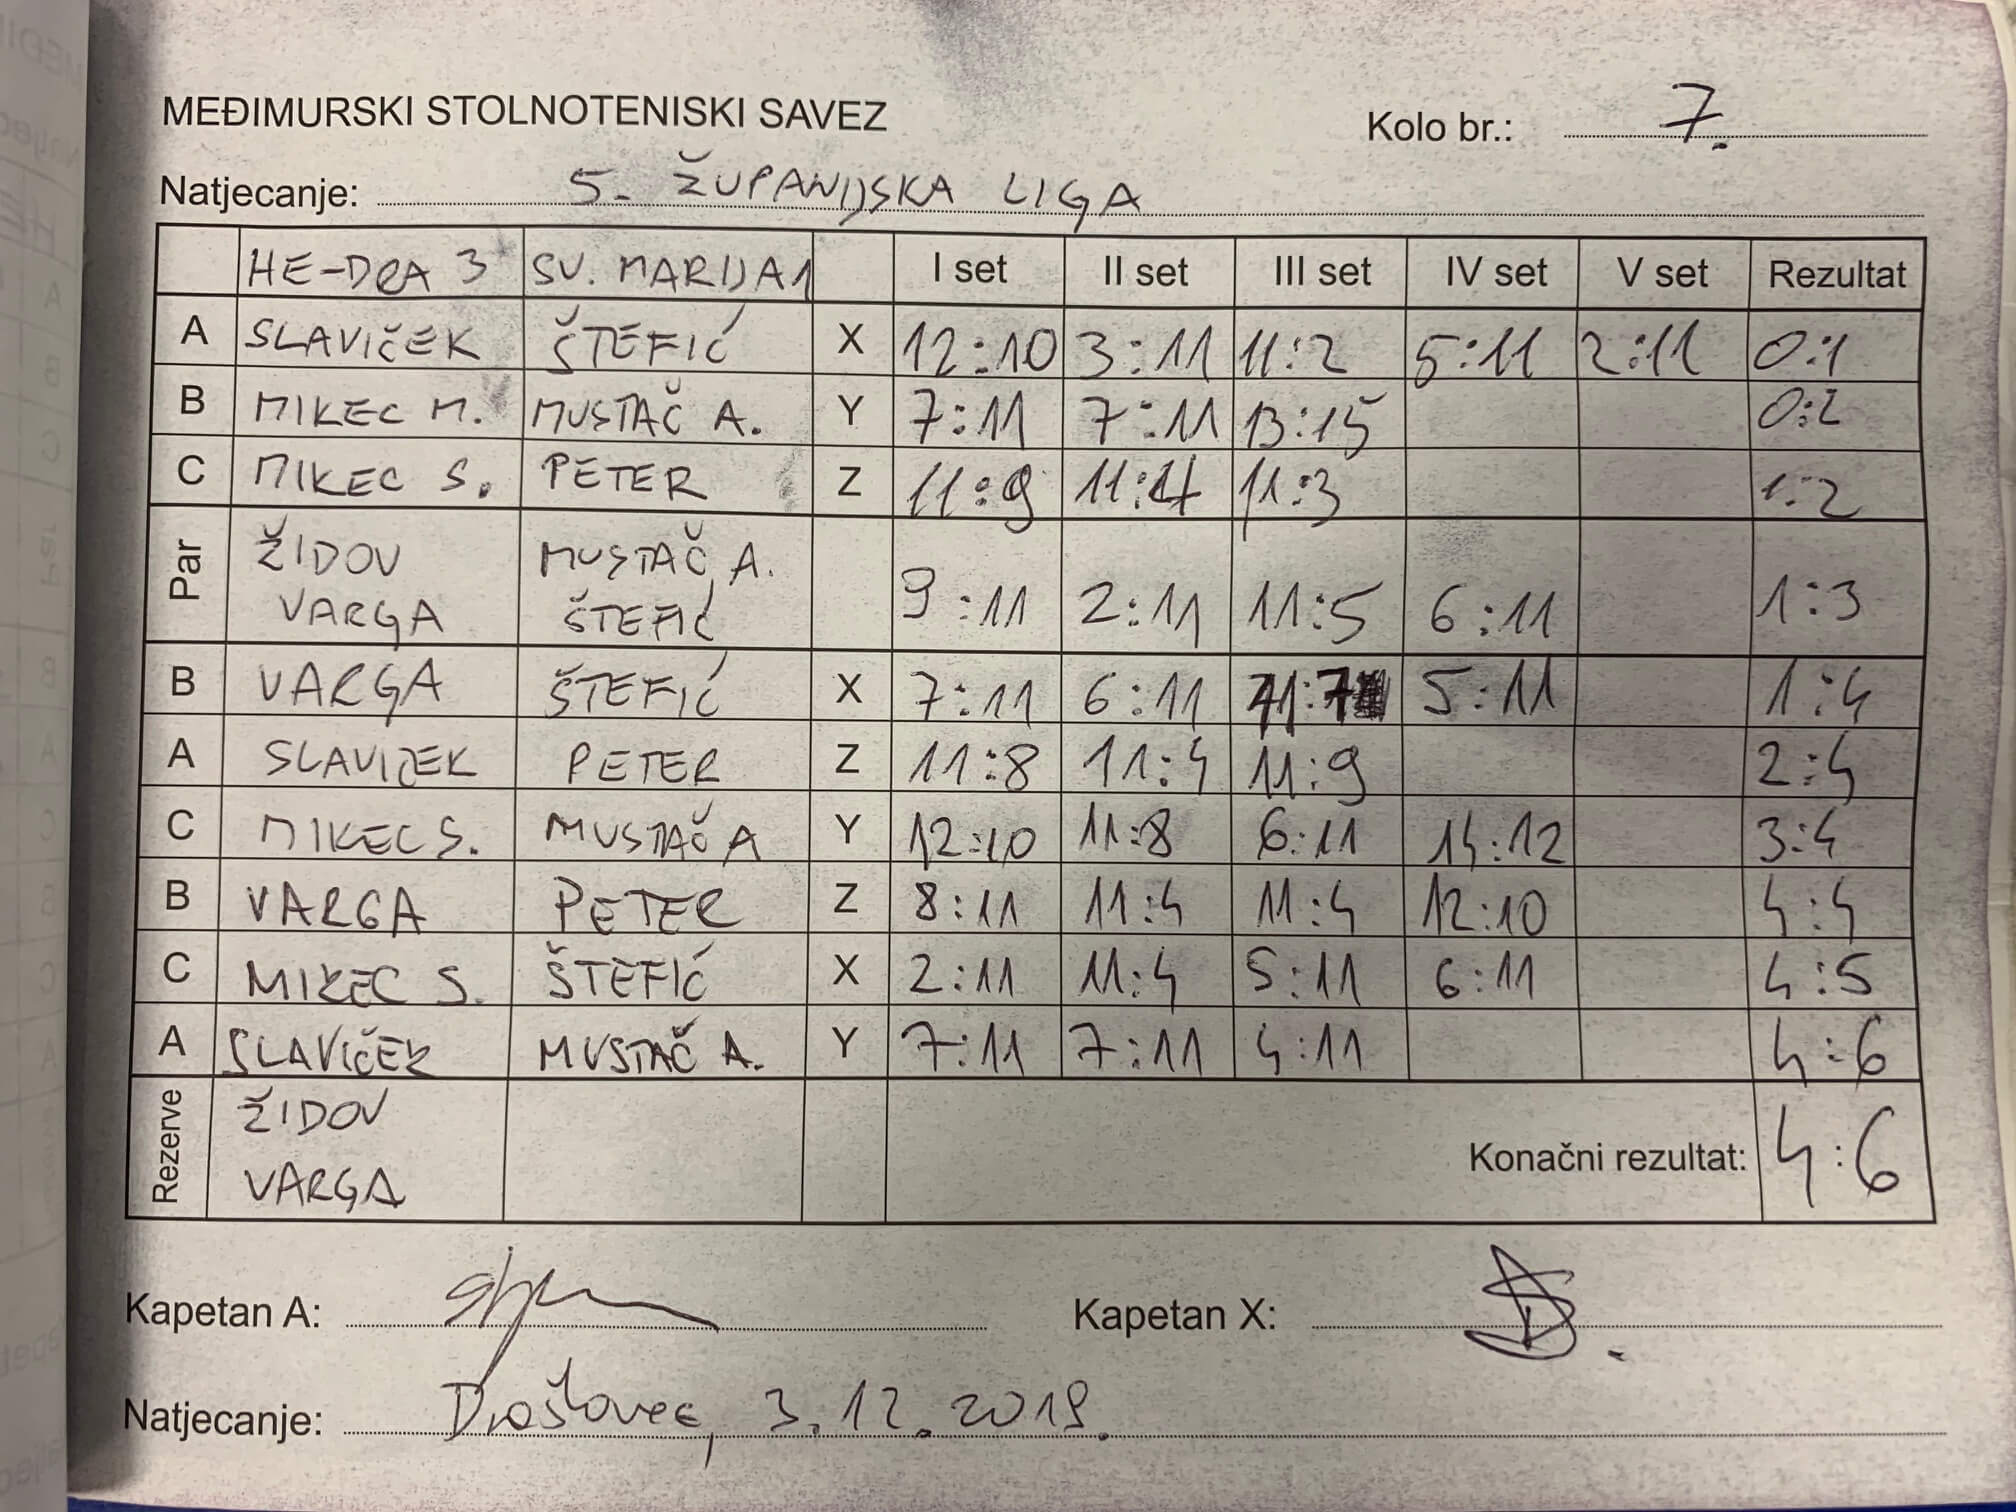 MEĐIMURSKI STOLNOTENISKI SAVEZ
Kolo br.: 7.
Natjecanje: 5. ŽUPANIJSKA LIGA
HE-DRA 3 SV. MARIJA 1 I set II set III set IV set V set Rezultat
A SLAVIČEK ŠTEFIĆ X 12:10 3:11 11:2 5:11 2:11 0:1
B MIKEC M. MUSTAČ A. Y 7:11 7:11 13:15 0:2
C MIKEC S. PETER Z 11:9 11:4 11:3 1:2
Par ŽIDOV VARGA MUSTAČ A. ŠTEFIĆ 9:11 2:11 11:5 6:11 1:3
B VARGA ŠTEFIĆ X 7:11 6:11 11:7 5:11 1:4
A SLAVIČEK PETER Z 11:8 11:4 11:9 2:4
C MIKEC S. MUSTAČ A Y 12:10 11:8 6:11 14:12 3:4
B VARGA PETER Z 8:11 11:4 11:4 12:10 4:4
C MIKEC S. ŠTEFIĆ X 2:11 11:4 5:11 6:11 4:5
A SLAVIČEK MUSTAČ A. Y 7:11 7:11 4:11 4:6
Rezerve ŽIDOV
VARGA
Konačni rezultat: 4:6
Kapetan A:
Kapetan X:
Natjecanje: 3.12.2019.